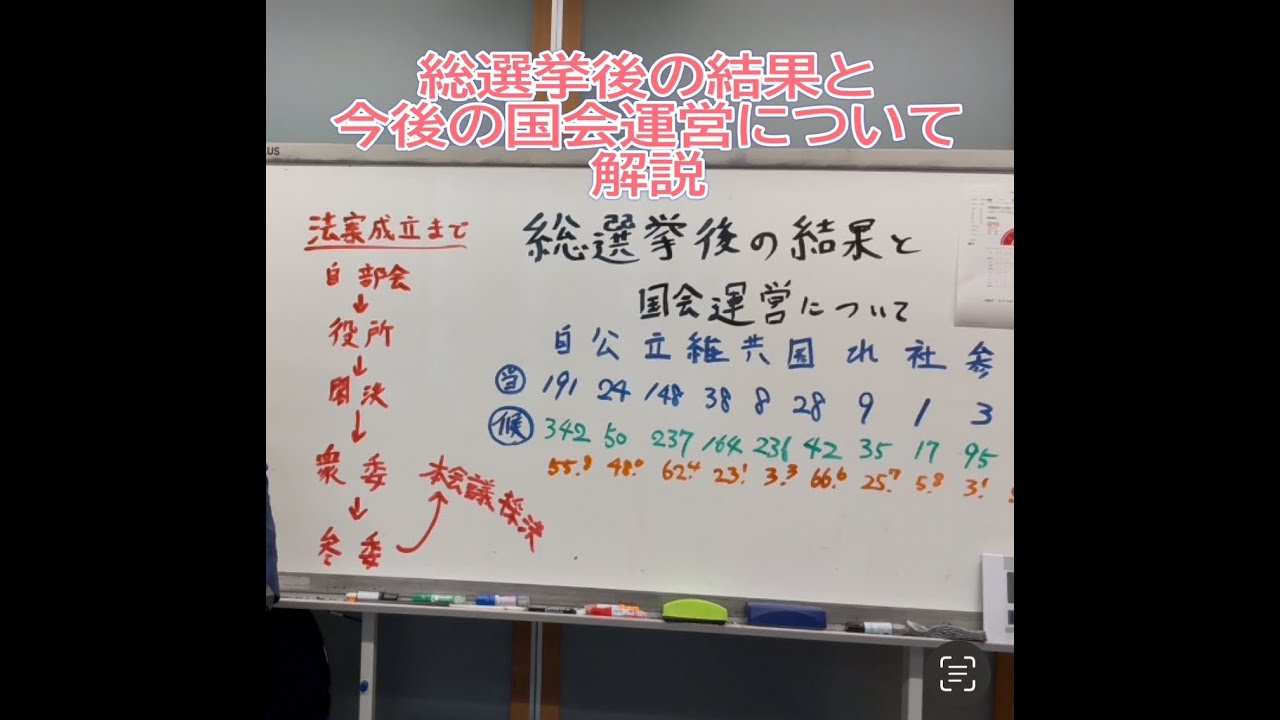 総選挙後の結果と
今後の国会運営について
解説
法案成立まで
自 部会
↓
役所
↓
閣決
↓
衆委
↓
参委
本会議採決
総選挙後の結果と
国会運営について
自 公 立 維 共 国 れ 社 参
当 191 24 148 38 8 28 9 1 3
候 342 50 237 164 236 42 35 17 95
55.8 48.0 62.4 23.1 3.3 66.6 25.7 5.8 3.1